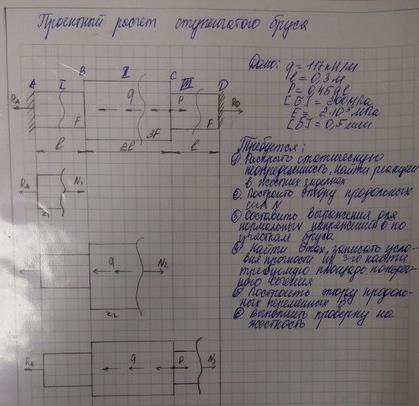 Проектный расчет ступенчатого бруса
Дано: q = 117 кН/м
l = 0,3 м
P = 0,45ql
[б] = 200 мПа
E = 2·10⁵ мПа
[δ] = 0,5 мм
A I B II C III D
RA q P RD
F 3F F
l 2l l
RA N1
z1
q N2
z2
RA q P N3
Требуется:
① Раскрыть статическую
неопределенность, найти реакции
в жестких заделках
② Построить эпюру продольных
сил N
③ Составить выражения для
нормальных напряжений б по
участкам бруса
④ Найти бmax, записать усло-
вия прочности из э-го найти
требуемую площадь попереч-
ного сечения
⑤ Построить эпюру продоль-
ных перемещений
⑥ Выполнить проверку на
жесткость